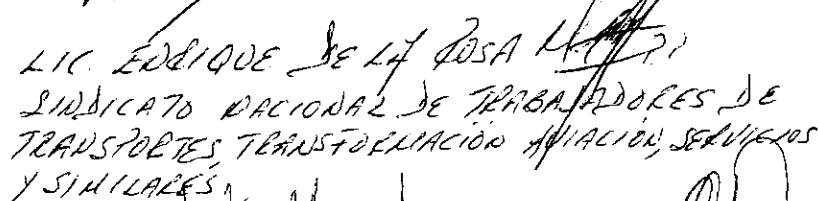 LIC. ENRIQUE DE LA ROSA
SINDICATO NACIONAL DE TRABAJADORES DE
TRANSPORTES, TRANSFORMACIÓN AVIACIÓN, SERVICIOS
Y SIMILARES